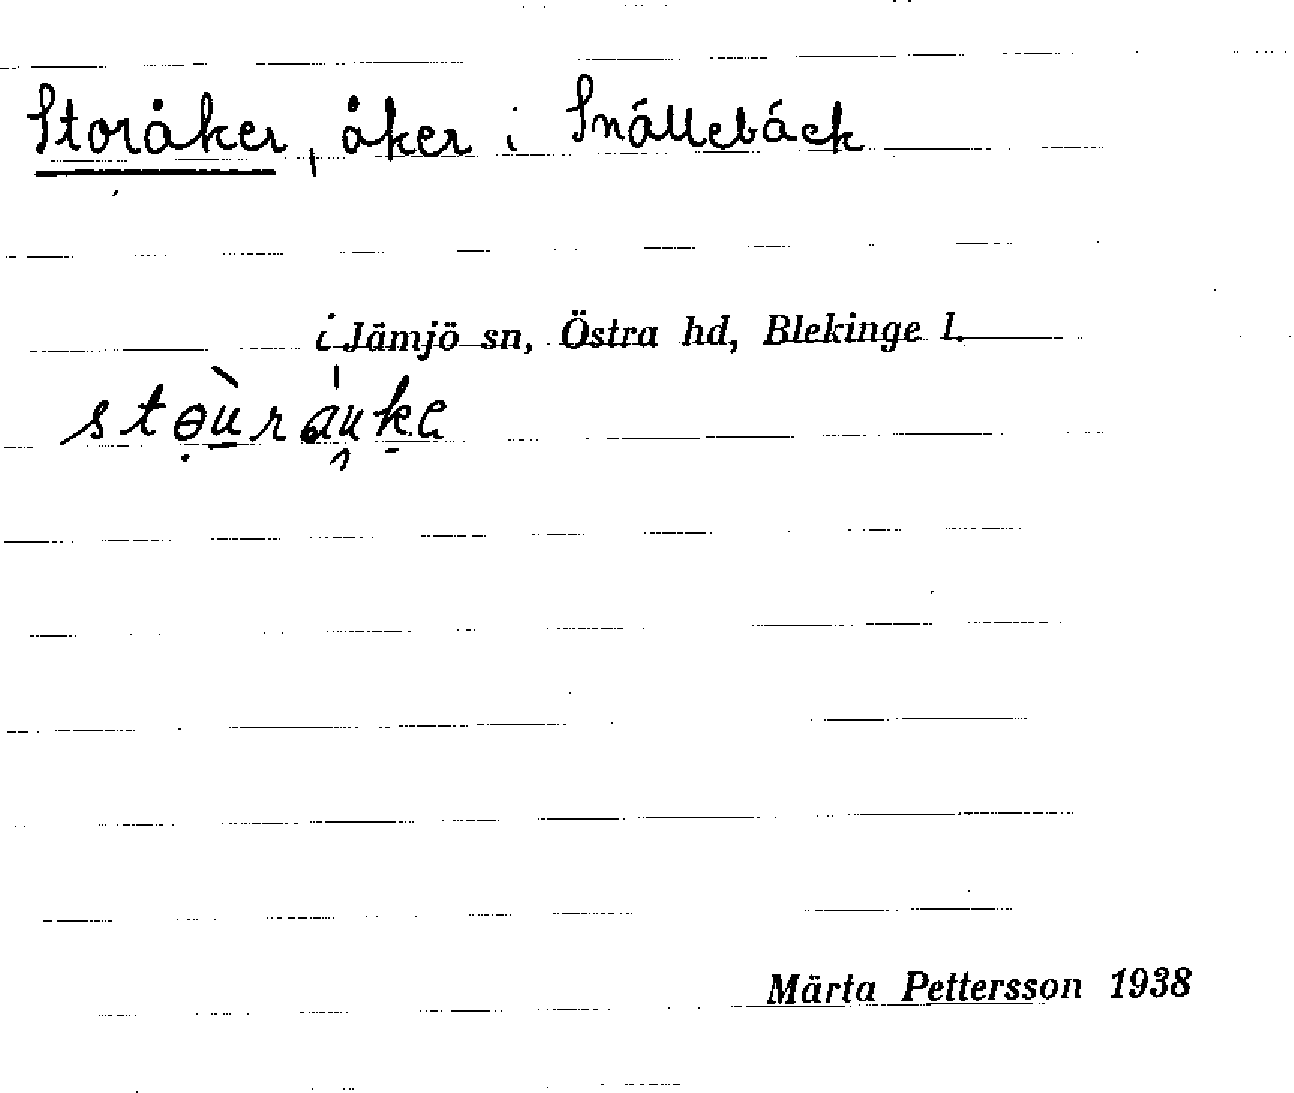 Storåker, åker i Snällebäck
i Jämjö sn, Östra hd, Blekinge l.
Märta Pettersson 1938